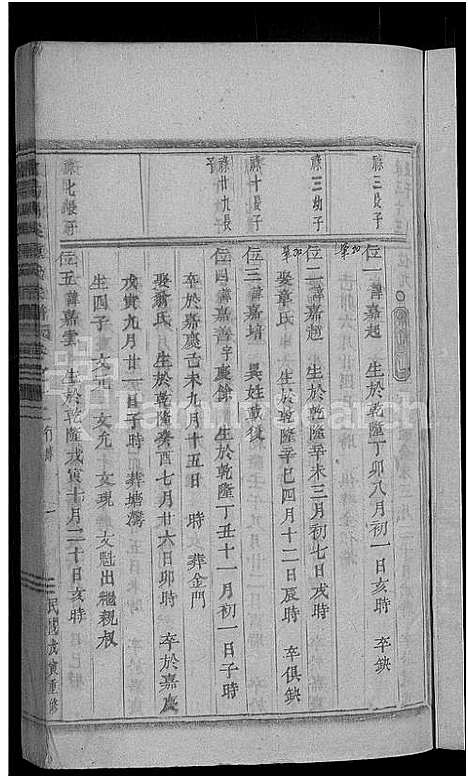 祿三長子
位一諱嘉起 生於乾隆丁卯八月初一日亥時 卒缺
祿三幼子
位二諱嘉超 生於乾隆辛未三月初七日戌時
娶章氏 生於乾隆辛巳四月十二日辰時 卒俱缺
祿十長子
位三諱嘉培 異姓承後
祿廿九長子
位四諱嘉善字慶餘 生於乾隆丁丑十一月初一日子時
卒於嘉慶己未九月十五日 時 葬金門
娶翁氏 生於乾隆癸酉七月廿六日卯時 卒於嘉慶
戊寅九月廿一日子時 葬塘灣
生四子 文元 文現 文魁出繼親叔
位五諱嘉雲 生於乾隆戊寅十月二十日亥時
行傳
一
民國戊寅重修
Search